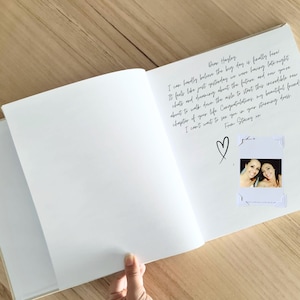 Dear Hayley,
I can hardly believe the big day is finally here!
It feels like just yesterday we were having late-night
chats and dreaming about the future, and now you're
about to walk down the aisle to start this incredible new
chapter of your life. Congratulations, my beautiful friend.
I can't wait to see you in your stunning dress.
From, Stacey xx